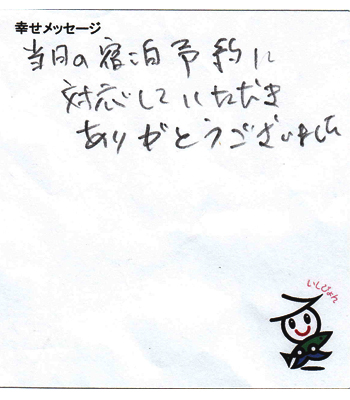 幸せメッセージ
当日の宿泊予約に
対応していただき
ありがとうございました
いしぴょん